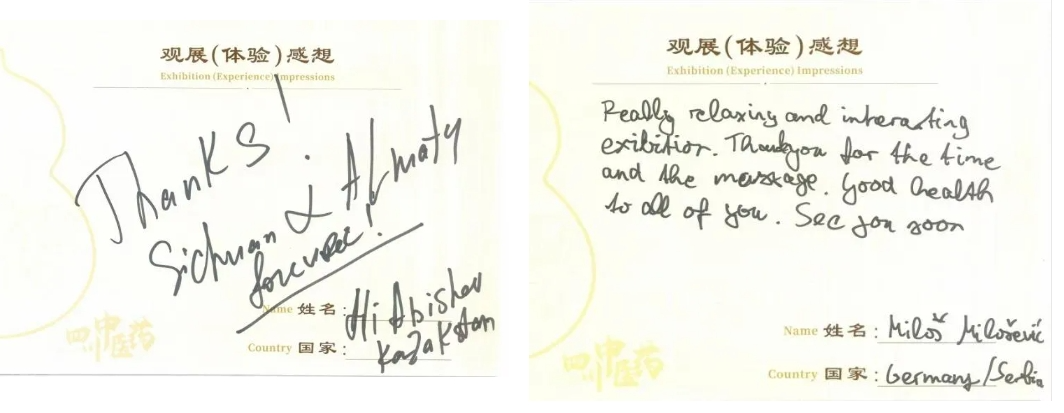 观展(体验)感想
Exhibition (Experience) Impressions
Thanks!
Sichuan & Almaty
forever!
Name 姓名:
Country 国家:
Kazakstan
四川中医药
观展(体验)感想
Exhibition (Experience) Impressions
Really relaxing and interasting
exibition. Thankyou for the time
and the massage. Good health
to all of you. See you soon
Name 姓名: Miloš Milošević
Country 国家: Germany/Serbia
四川中医药